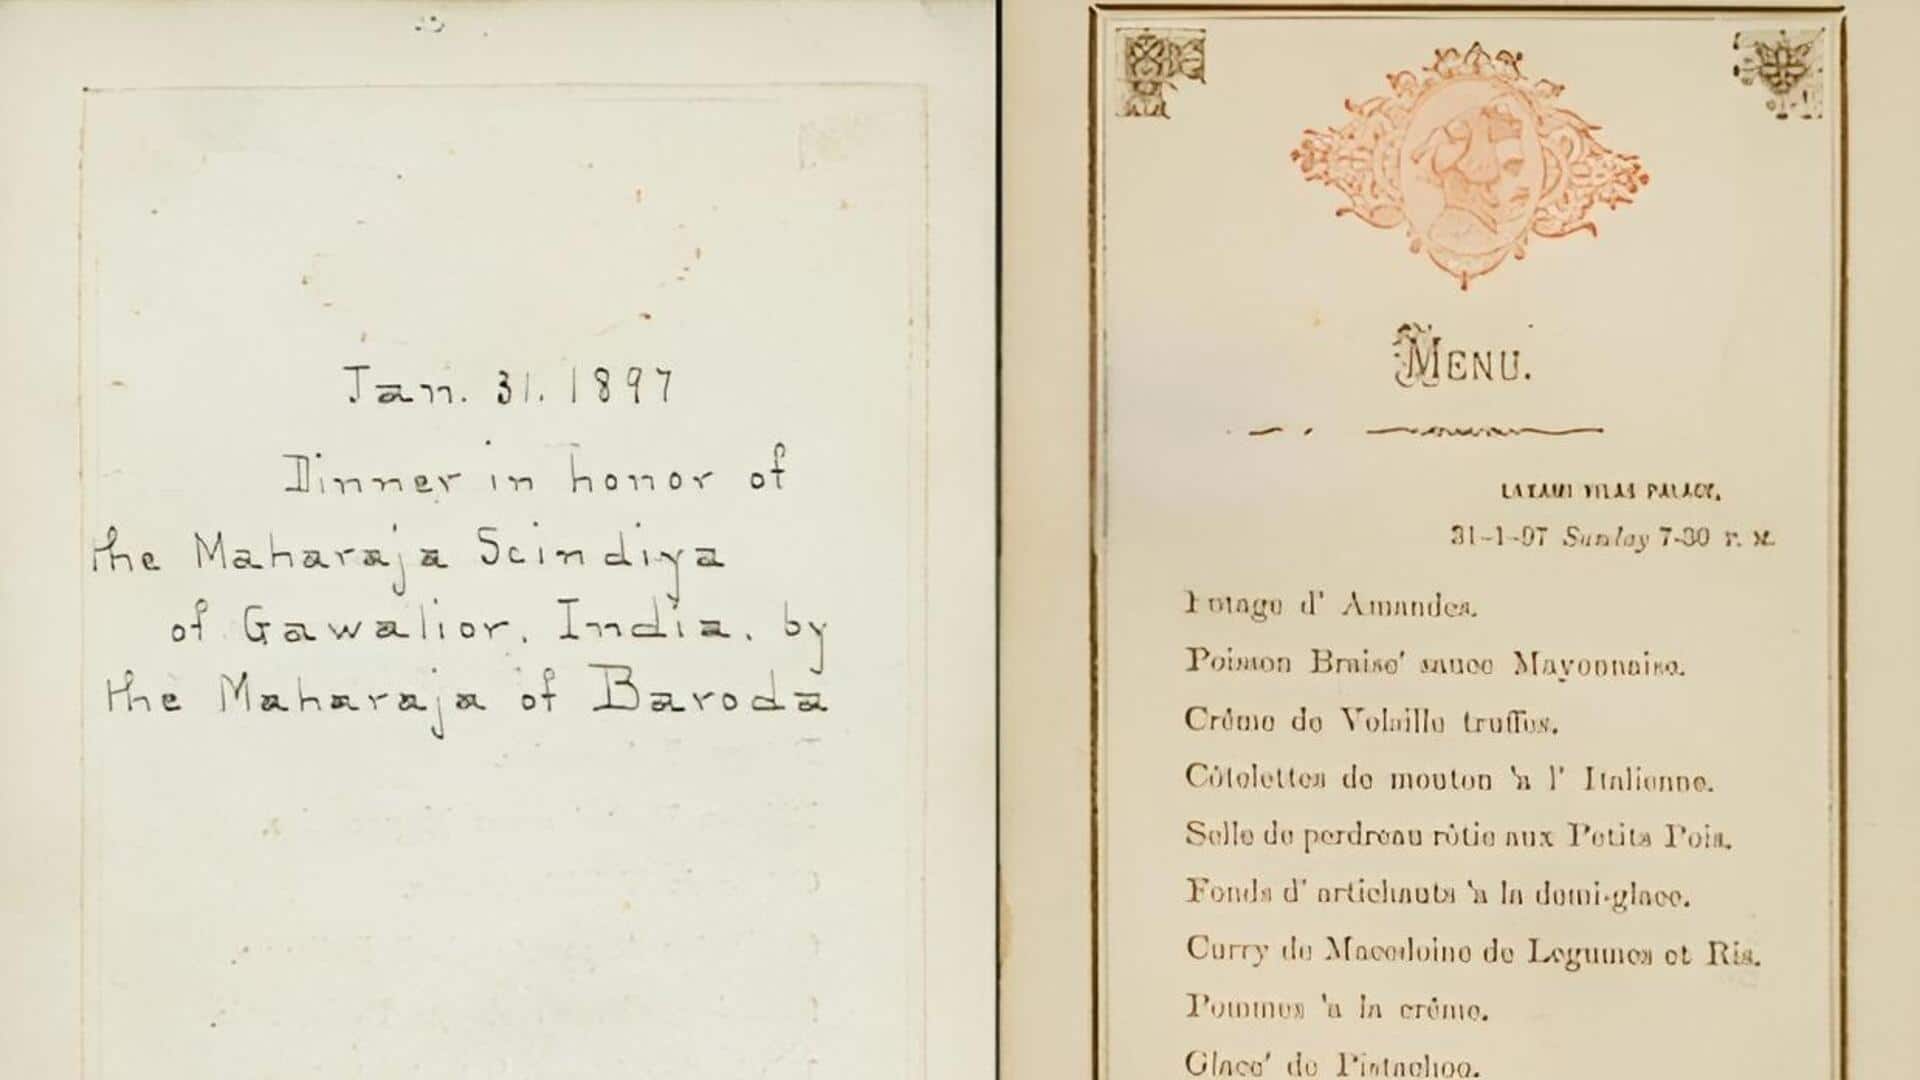 Jan. 31. 1897
Dinner in honor of
the Maharaja Scindiya
of Gawalior, India, by
the Maharaja of Baroda
MENU.
LAXAMI VILAS PALACE,
31-1-97 Sunday 7-30 P. M.
Potage d' Amandes.
Poisson Braise' sauce Mayonnaise.
Crême de Volaille truffes.
Côtelettes de mouton 'a l' Italienne.
Selle de perdreau rôtie aux Petits Pois.
Fonds d' artichauts 'a la demi-glace.
Curry de Macedoine de Legumes et Ris.
Pommes 'a la crême.
Glace' de Pistachoe.